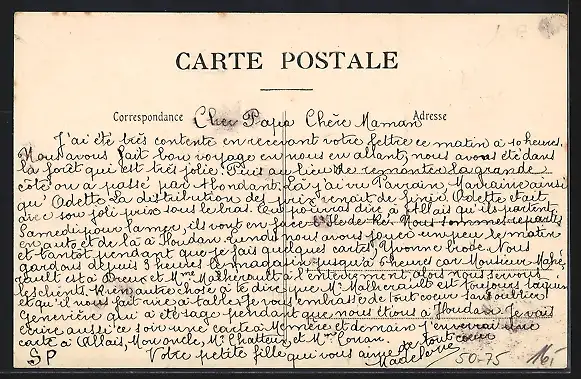 CARTE POSTALE
Correspondance Adresse
Cher Papa Chère Maman
J'ai été très contente en recevant votre lettre ce matin à 10 heures,
Nous avons fait bon voyage en nous en allant, nous avons été dans
la forêt qui est très jolie. Puis au lieu de remonter la grande
côte on a passé par Abondant. Là j'ai vu Parrain, Marraine ainsi
qu'Odette. La distribution des prix venait de finir. Odette était
avec son joli prix sous le bras. Tu pourras dire à Allais qu'ils partent
Samedi pour la mer, ils vont en face l'Ile de Ré. Nous sommes repartis
en auto et de là à Houdan. Lundi nous avons joué un peu le matin
et tantôt pendant que je fais quelques cartes, Yvonne brode. Nous
gardons depuis 3 heures le magasin jusqu'à 6 heures car Monsieur Malhé-
rault est à Dreux et Mme Malherault à l'enterrement alors nous servons
les clients. Rien autre chose à te dire que Mr Malherault est toujours taquin
et qu'il nous fait rire à table. Je vous embrasse de tout coeur sans oublier
Geneviève qui a été sage pendant que nous étions à Houdan. Je vais
écrire aussi ce soir une carte à Mémère et demain j'enverrai une
carte à Allais, Mr Chatteux et Mme
Votre petite fille qui vous aime de tout coeur
Madeleine
SP
50-75
16,-